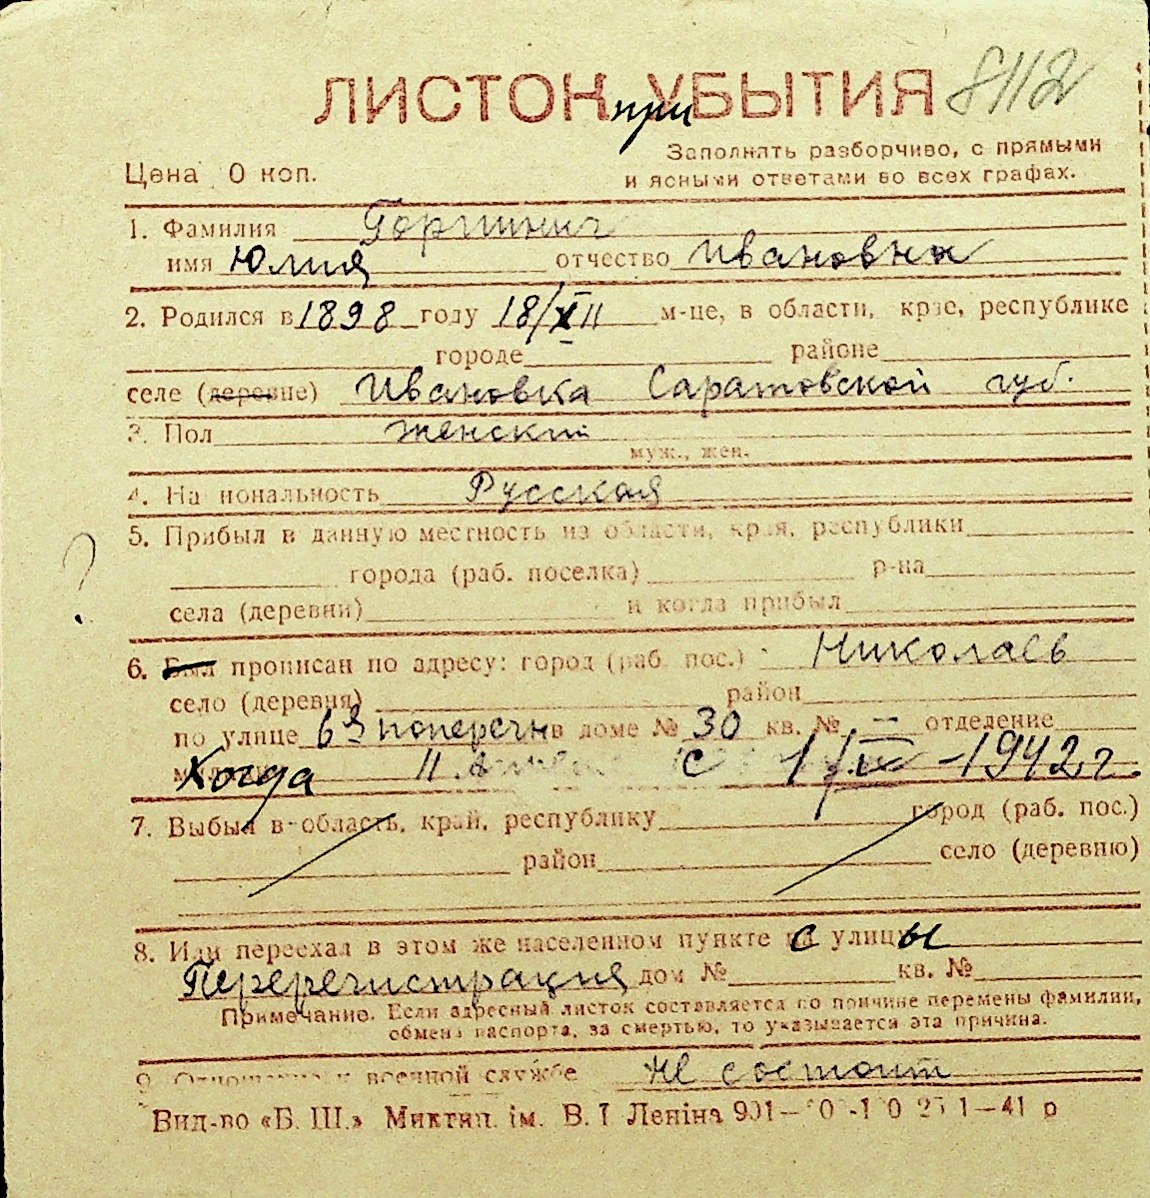 ЛИСТОК при УБЫТИЯ 8112
Заполнять разборчиво, с прямыми
Цена 0 коп.
и ясными ответами во всех графах.
1. Фамилия
имя Юлия отчество Ивановна
2. Родился в 1898 году 18/XII м-це, в области, крае, республике
городе районе
селе (деревне) Ивановка Саратовской губ.
3. Пол женский
муж., жен.
4. Национальность Русская
5. Прибыл в данную местность из области, края, республики
города (раб. поселка) р-на
села (деревни) и когда прибыл
6. Был прописан по адресу: город (раб. пос.) Николаев
село (деревня) район
по улице 6я поперечн в доме № 30 кв. № — отделение
Когда с 1/IV - 1942 г.
7. Выбыл в область, край, республику город (раб. пос.)
район село (деревню)
8. Или переехал в этом же населенном пункте с улицы
Перерегистрация дом № кв. №
Примечание. Если адресный листок составляется по причине перемены фамилии,
обмена паспорта, за смертью, то указывается эта причина.
9. Отношение к военной службе не состоит
Вид-во «Б. Ш.» Миктип. ім. В. І Леніна 901— 1—41 р